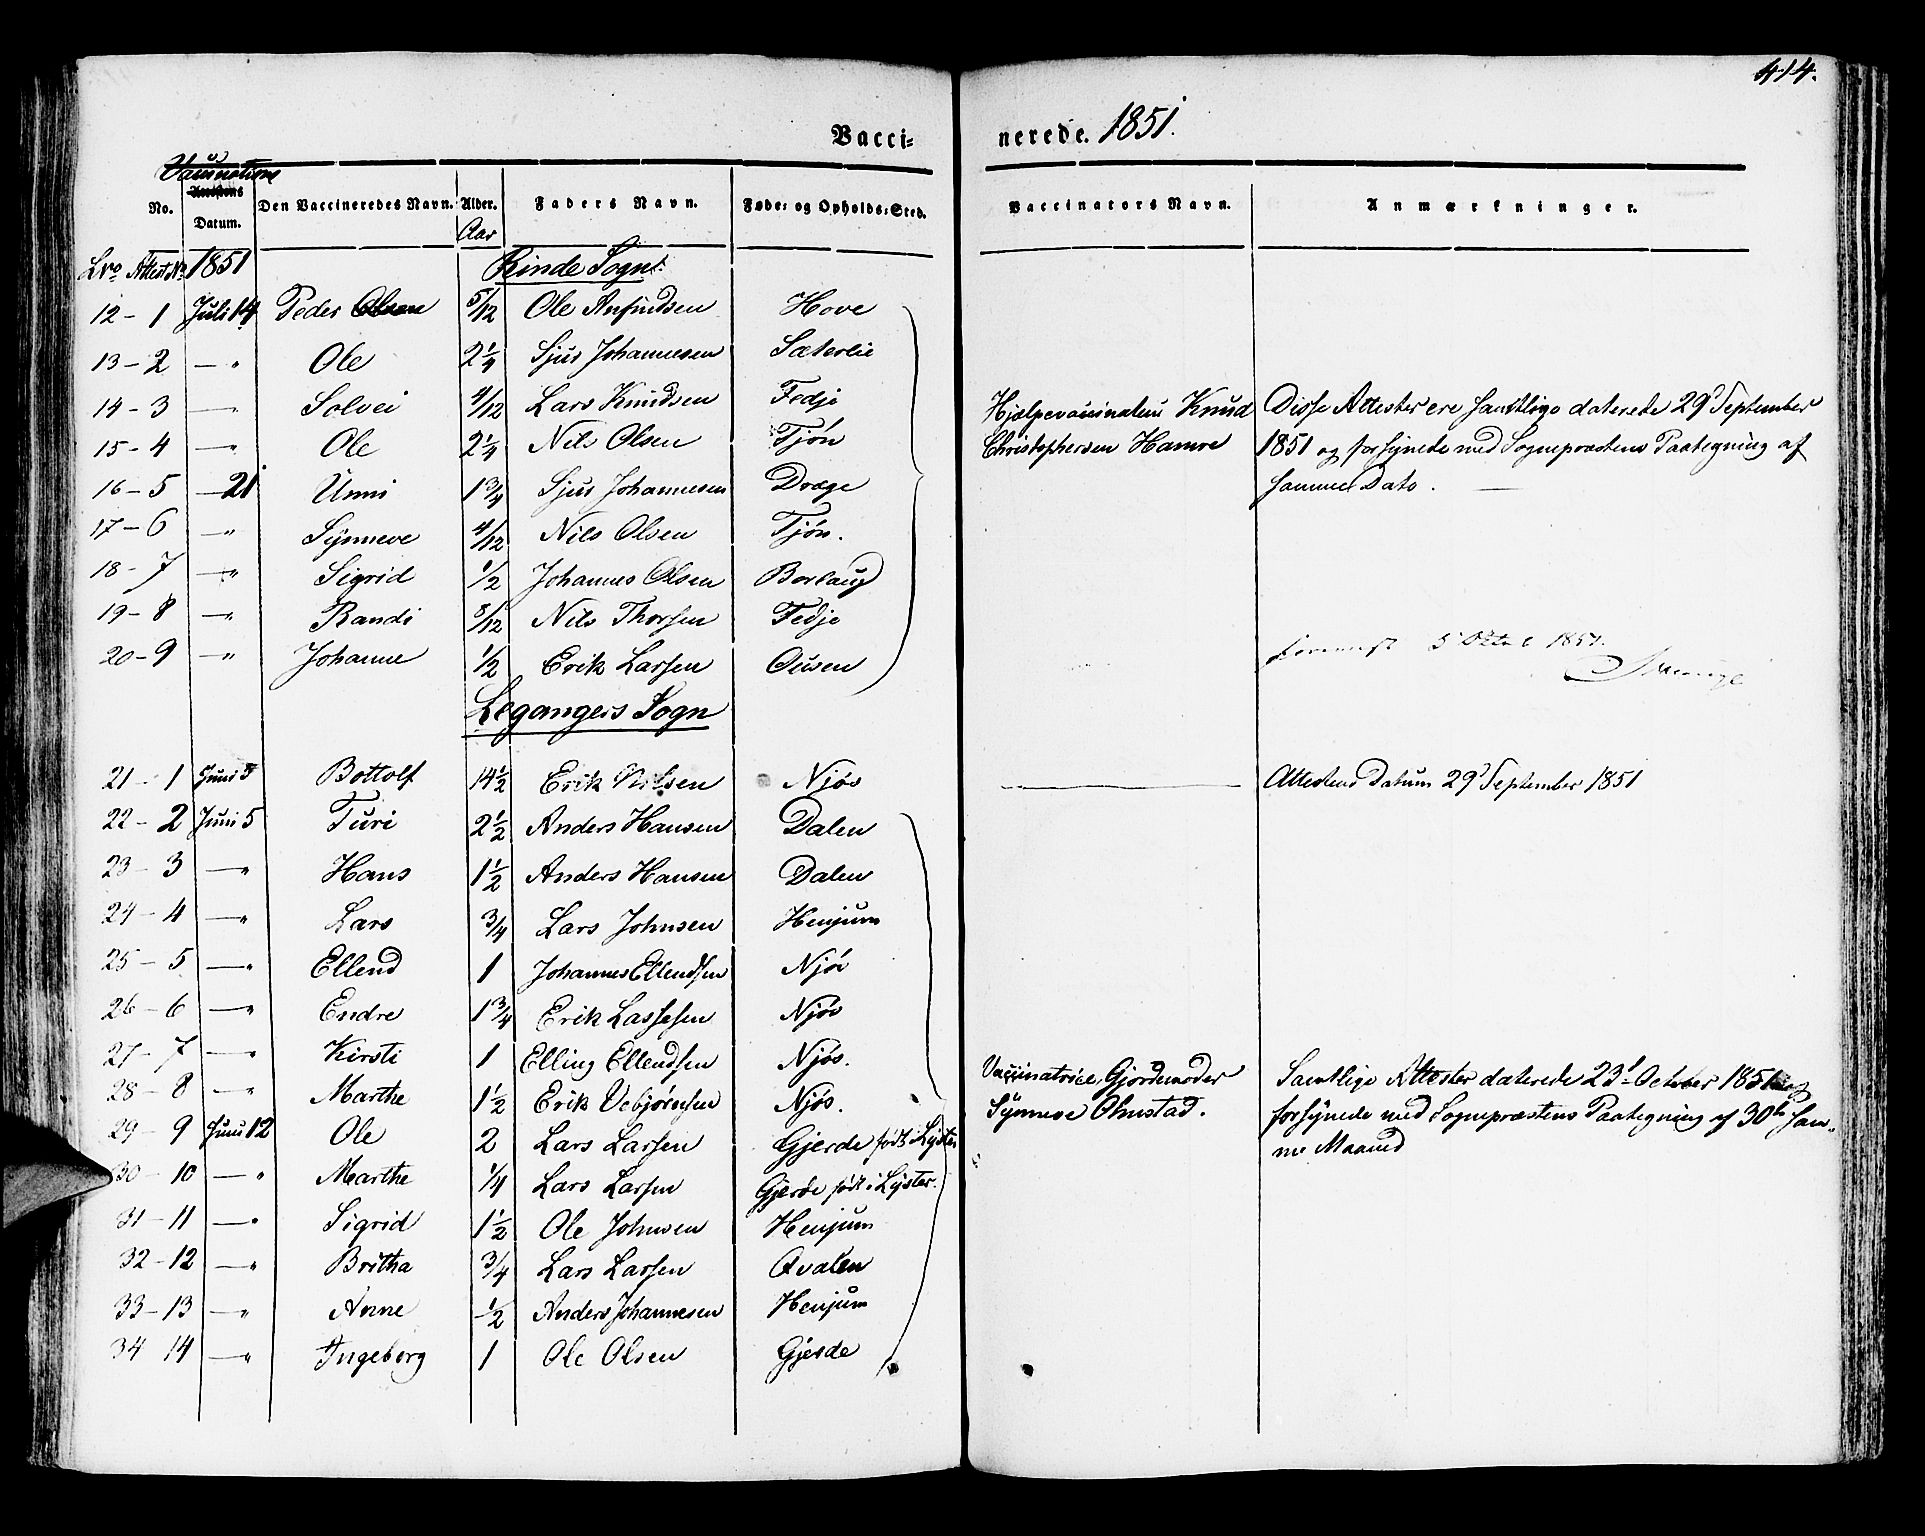 414.
Vacci-
nerede. 1851.
Vaccinations
No. Attestens Datum. Den Vaccineredes Navn. Alder. Faders Navn. Føde- og Opholds-Sted. Vaccinators Navn. Anmærkninger.
Aar
Lro Attest No. 1851 Rinde Sogn.
12 - 1 Juli 14 Peder Olsen 5/12 Ole Anfindsen Hove
13 - 2 — " Ole 2 1/4 Sjur Johannesen Sæterlie
14 - 3 — " Solvei 4/12 Lars Knudsen Fedje
Hjælpevaccinateur Knud Disse Attester ere samtlige daterede 29d September
15 - 4 — " Ole 2 1/4 Nils Olsen Tjøn
Christophersen Hamre 1851 og forsynede med Sognepræstens Paategning af
16 - 5 — 21 Unni 1 3/4 Sjur Johannesen Drage
samme Dato.
17 - 6 — " Synneve 4/12 Nils Olsen Tjøn.
18 - 7 — " Sigrid 1/2 Johannes Olsen Borlaug
19 - 8 — " Randi 8/12 Nils Thorsen Fedje
20 - 9 — " Johanne 1/2 Erik Larsen Ousen
5 1851.
Legangers Sogn
21 - 1 Juni 5 Bottolf 14 1/2 Erik Nilsen Njøs — Attestens Datum 29d September 1851
22 - 2 Juni 5 Turi 2 1/2 Anders Hansen Dalen
23 - 3 — " Hans 1 1/2 Anders Hansen Dalen
24 - 4 — " Lars 3/4 Lars Johnsen Henjum
25 - 5 — " Ellend 1 Johannes Ellendsen Njøs
26 - 6 — " Endre 1 3/4 Erik Lassesen Njøs
27 - 7 — " Kirsti 1 Elling Ellendsen Njøs.
Vaccinatrice, Gjordemoder Samtlige Attester daterede 23d October 1851 og
28 - 8 — " Marthe 1 1/2 Erik Vebjørnsen Njøs.
Synneve Olmstad. forsynede med Sognepræstens Paategning af 30te sam-
29 - 9 Juni 12 Ole 2 Lars Larsen Gjerde født i Lyster
me Maaned
30 - 10 — " Marthe 1/4 Lars Larsen Gjerde født i Lyster.
31 - 11 — " Sigrid 1 1/2 Ole Johnsen Henjum
32 - 12 — " Britha 3/4 Lars Larsen Qvalen
33 - 13 — " Anne 1/2 Anders Johannesen Henjum
34 14 — " Ingeborg 1 Ole Olsen Gjerde